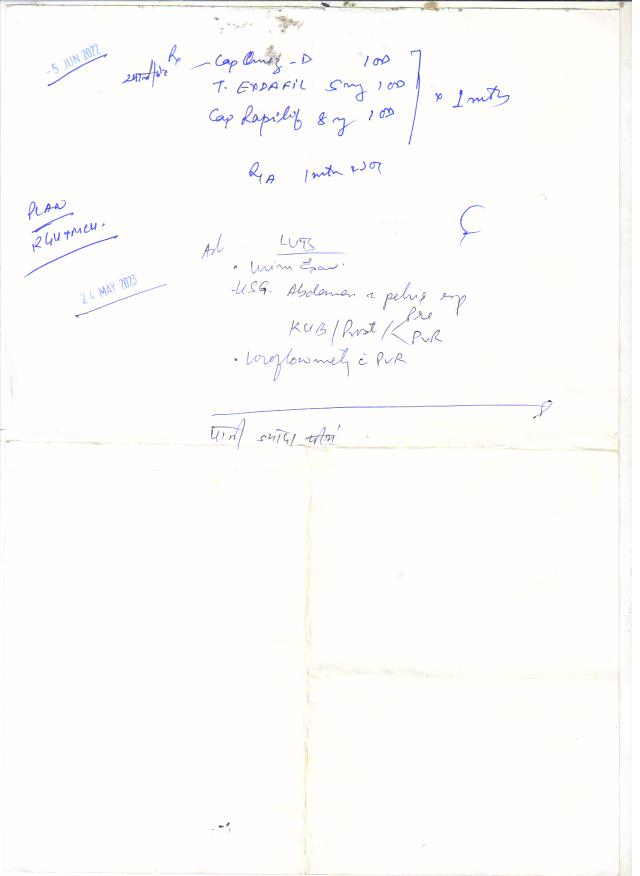 -5 JUN 2022
Rx
Cap Omez-D 1OD
T. EXDAFIL 5 mg 1OD
Cap Rapilif 8 mg 1OD
× 1 mth
R/A 1 mth
PLAN
24 MAY 2023
Adv LUTS
• Urine Exam.
- USG. Abdomen c pelvis
KUB / Prost / Pre
PVR
• Uroflowmetry c̄ PVR
पानी ज्यादा पीयें